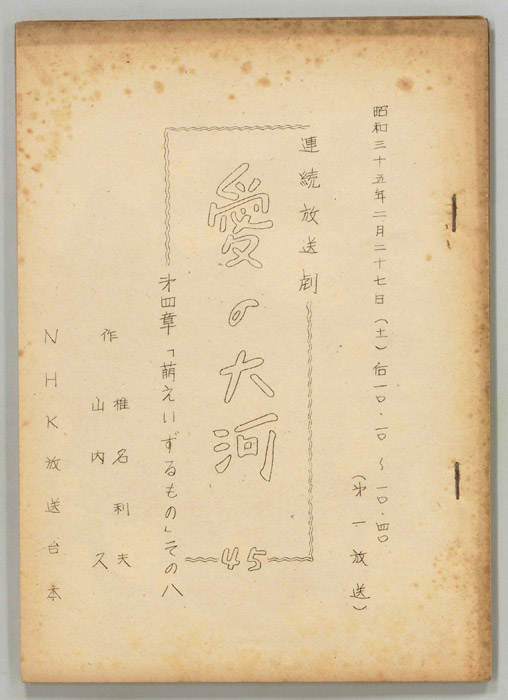 昭和三十五年二月二十七日(土)后一〇・二〇〜一〇・四〇
(才一放送)
連続放送劇
愛の大河
45
才四章「萌えいずるもの」その八
作 椎名利夫
山内久
NHK放送台本